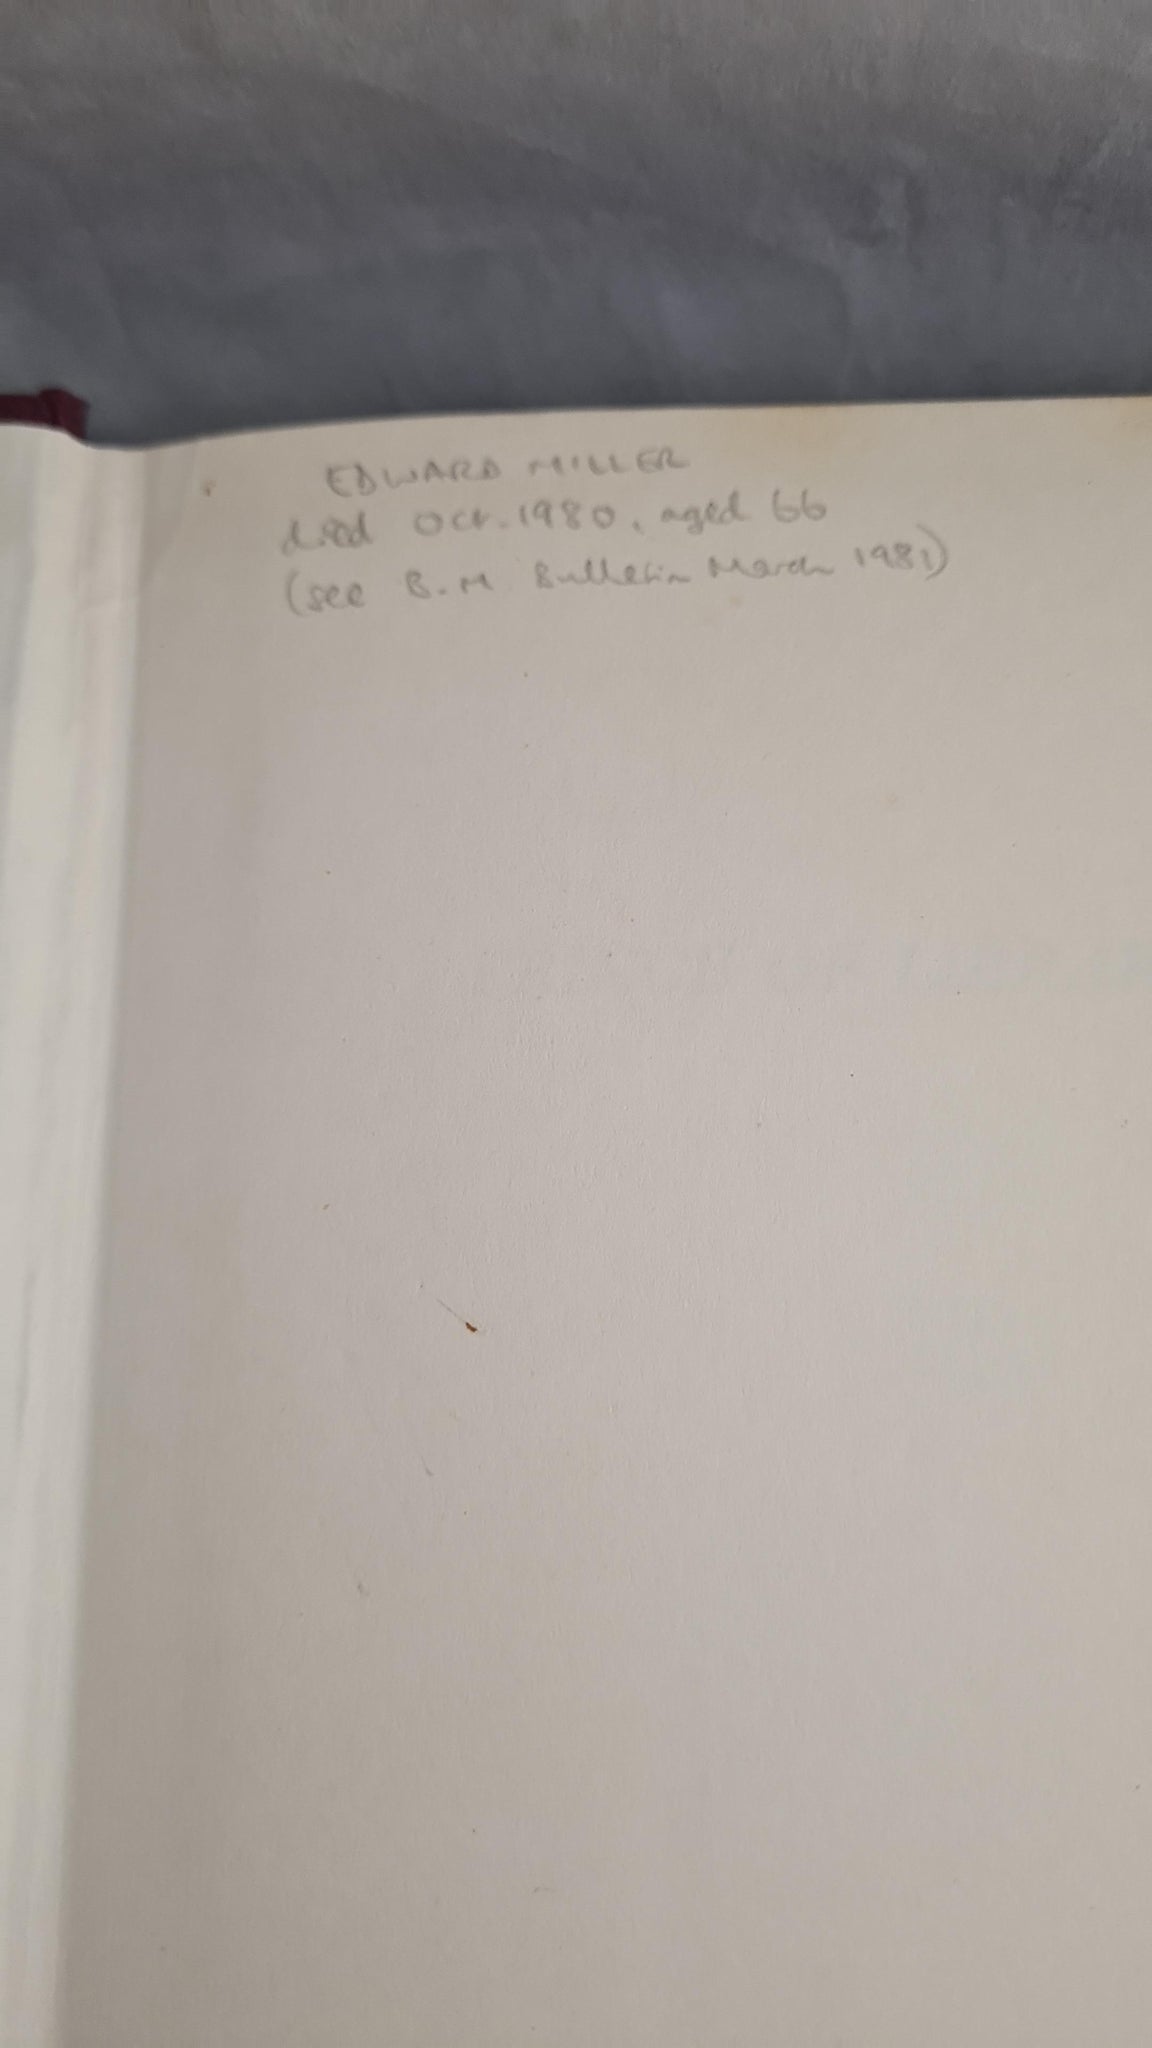 EDWARD MILLER
died Oct. 1980, aged 66
(see B.M. Bulletin March 1981)